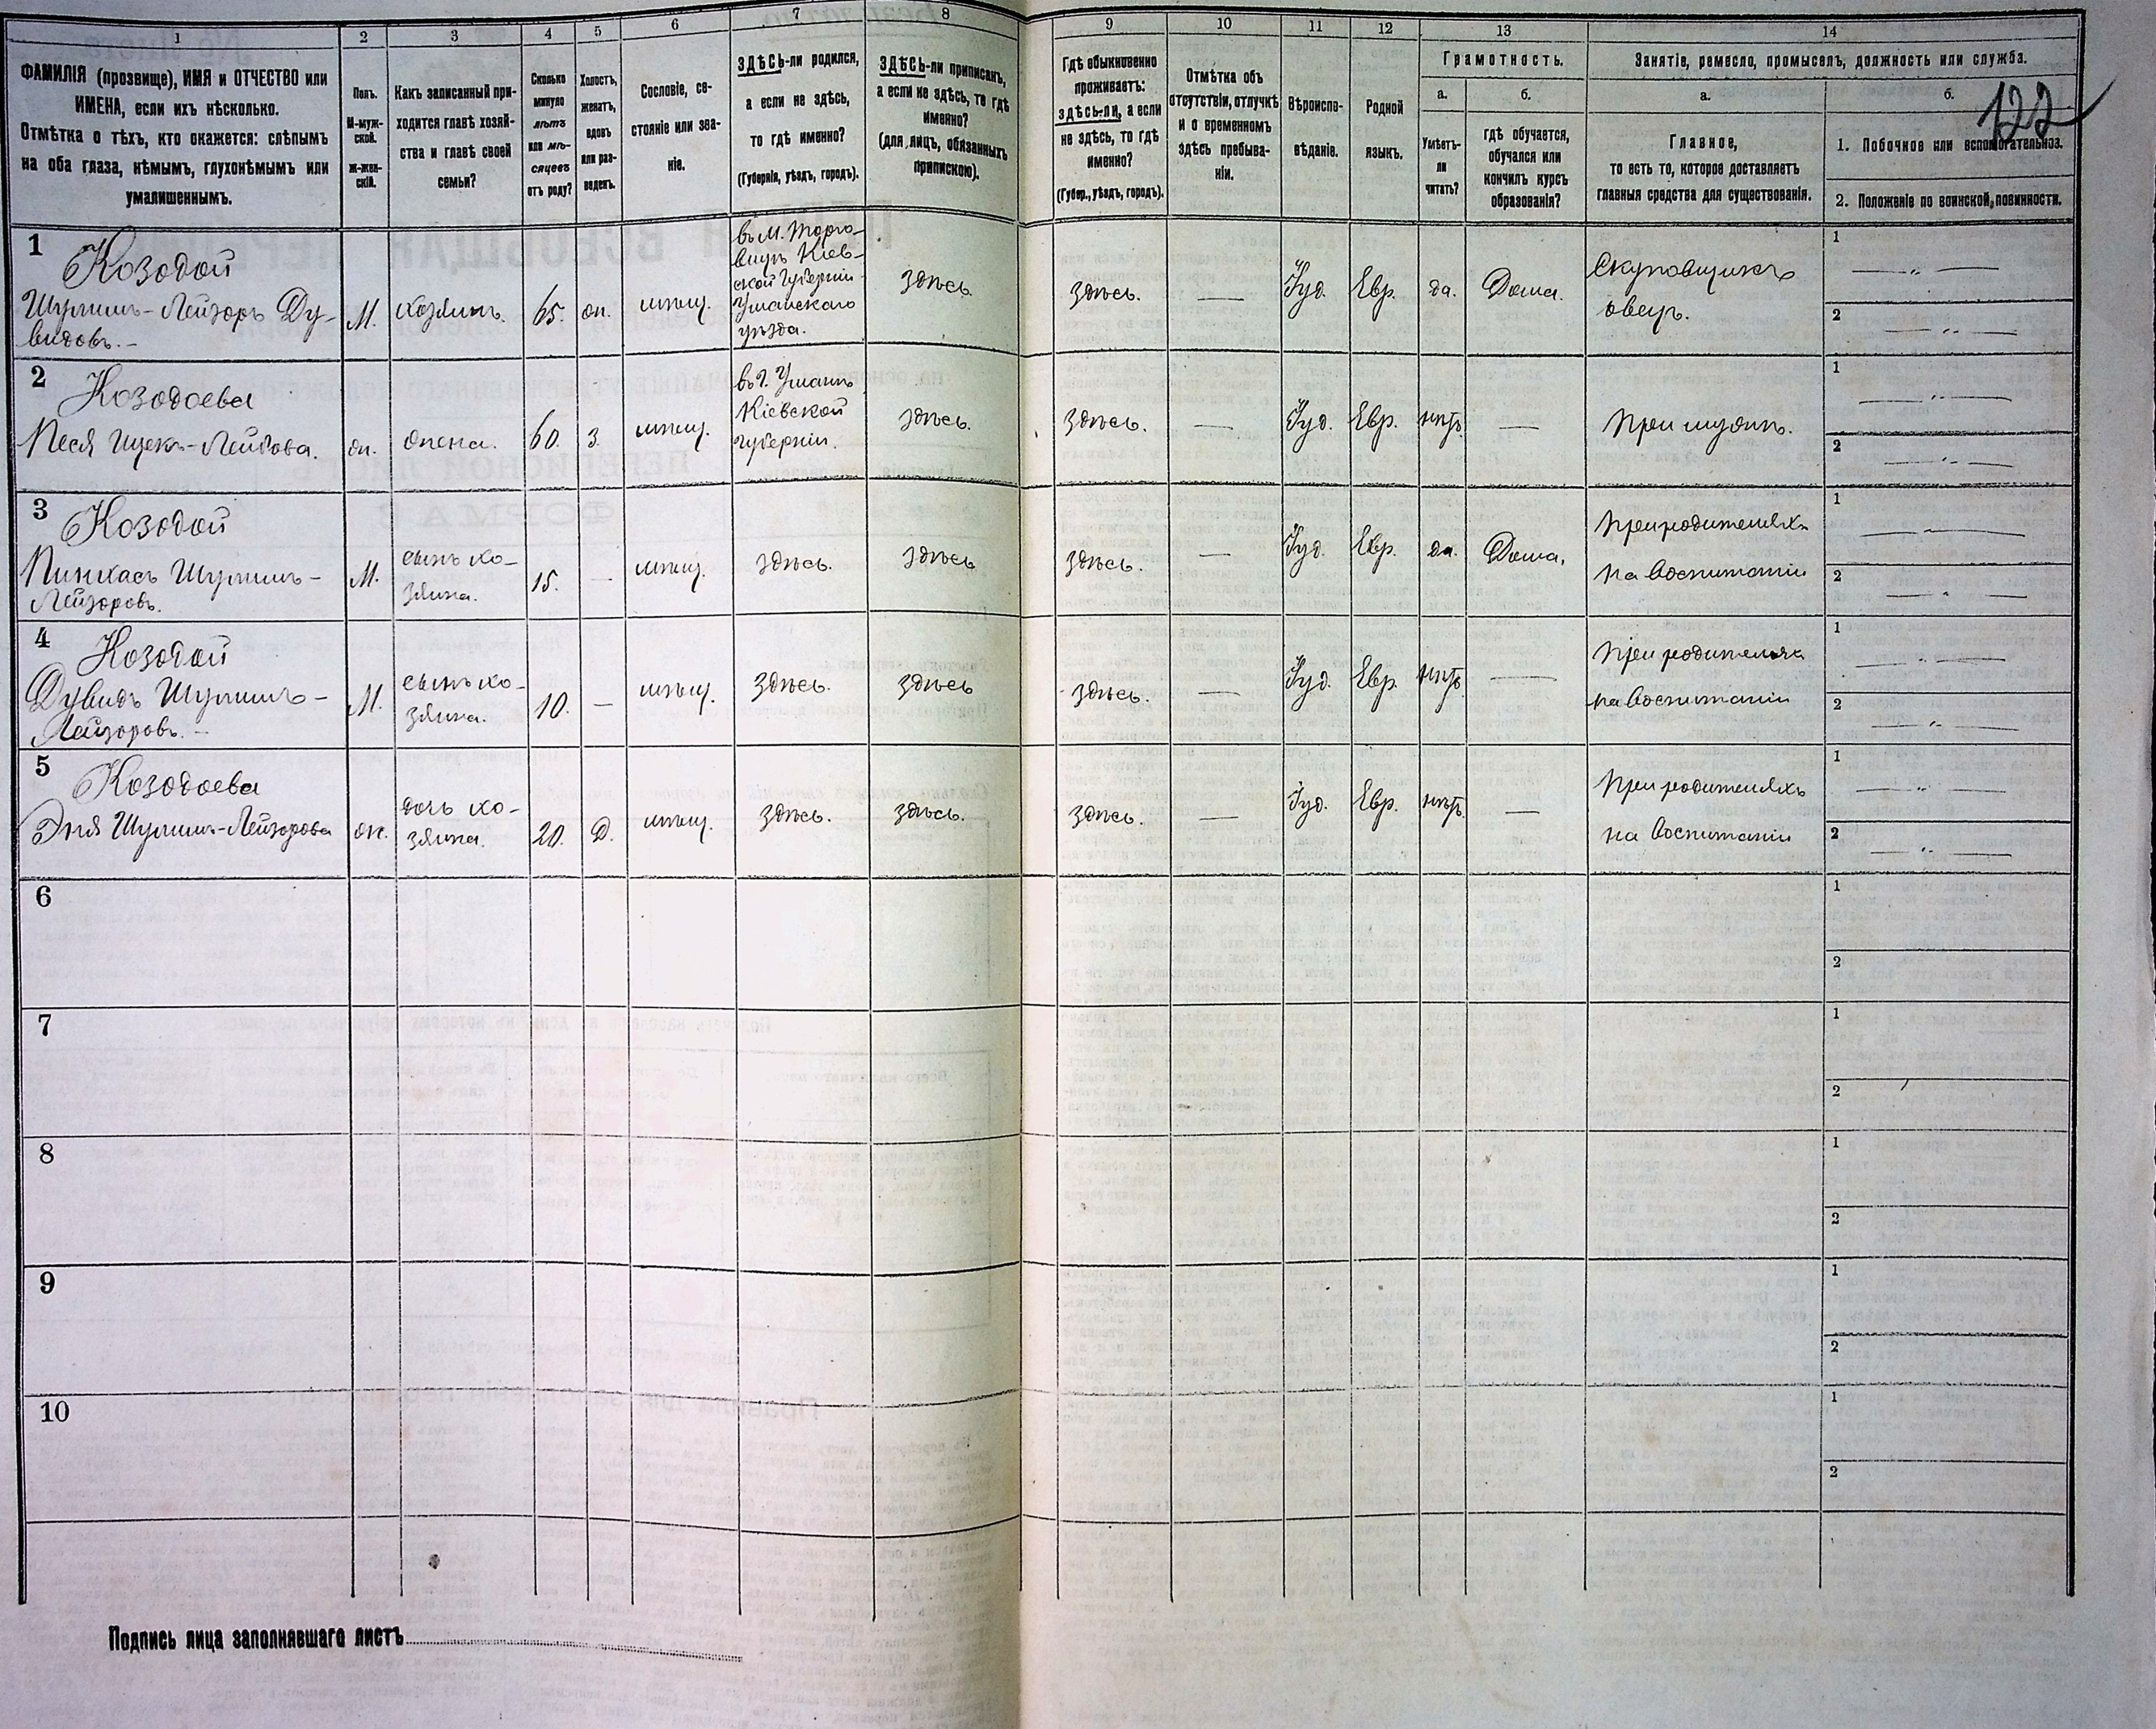 1
2
3
4
5
6
7
8
9
10
11
12
13
14
ФАМИЛІЯ (прозвище), ИМЯ и ОТЧЕСТВО или
ИМЕНА, если ихъ нѣсколько.
Отмѣтка о тѣхъ, кто окажется: слѣпымъ
на оба глаза, нѣмымъ, глухонѣмымъ или
умалишеннымъ.
Полъ.
М-муж-
ской.
Ж-жен-
скій.
Какъ записанный при-
ходится главѣ хозяй-
ства и главѣ своей
семьи?
Сколько
минуло
лѣтъ
или мѣ-
сяцевъ
отъ роду?
Холостъ,
женатъ,
вдовъ
или раз-
веденъ.
Сословіе, со-
стояніе или зва-
ніе.
ЗДѢСЬ-ли родился,
а если не здѣсь,
то гдѣ именно?
(Губернія, уѣздъ, городъ).
ЗДѢСЬ-ли приписанъ,
а если не здѣсь, то гдѣ
именно?
(для лицъ, обязанныхъ
припискою).
Гдѣ обыкновенно
проживаетъ:
здѣсь-ли, а если
не здѣсь, то гдѣ
именно?
(Губер., уѣздъ, городъ).
Отмѣтка объ
отсутствіи, отлучкѣ
и о временномъ
здѣсь пребыва-
ніи.
Вѣроиспо-
вѣданіе.
Родной
языкъ.
Грамотность.
а.
б.
Умѣетъ-
ли
читать?
гдѣ обучается,
обучался или
кончилъ курсъ
образованія?
Занятіе, ремесло, промыселъ, должность или служба.
а.
б.
122
Главное,
то есть то, которое доставляетъ
главныя средства для существованія.
1. Побочное или вспомогательное.
2. Положеніе по воинской повинности.
1
Козодой
Шулимъ-Лейзоръ Ду-
видовъ.-
М.
хозяинъ.
65.
жн.
мѣщ.
въ м. Торго-
вицѣ Кіев-
ской Губерніи
Уманскаго
уѣзда.
здѣсь.
здѣсь.
—
Іуд.
Евр.
да.
Дома.
Скуповщикъ
овецъ.
1
— „ —
2
— „ —
2
Козодоева
Песя Ицекъ-Лейбова.
жн.
жена.
60.
З.
мѣщ.
въ г. Умани
Кіевской
губерніи.
здѣсь.
здѣсь.
—
Іуд.
Евр.
нѣтъ
—
При мужѣ.
1
— „ —
2
— „ —
3
Козодой
Пинхасъ Шулимъ-
Лейзоровъ.
М.
сынъ хо-
зяина.
15.
—
мѣщ.
здѣсь.
здѣсь
здѣсь.
—
Іуд.
Евр.
да.
Дома.
При родителяхъ
на воспитаніи
1
— „ —
2
— „ —
4
Козодой
Дувидъ Шулимъ-
Лейзоровъ.-
М.
сынъ хо-
зяина.
10.
—
мѣщ.
здѣсь.
здѣсь
здѣсь.
—
Іуд.
Евр.
нѣтъ
—
При родителяхъ
на воспитаніи
1
— „ —
2
— „ —
5
Козодоева
Эня Шулимъ-Лейзорова
жн.
дочь хо-
зяина.
20.
Д.
мѣщ.
здѣсь.
здѣсь.
здѣсь.
—
Іуд.
Евр.
нѣтъ
—
При родителяхъ
на воспитаніи
1
2
— „ —
6
1
2
7
1
2
8
1
2
9
1
2
10
1
2
Подпись лица заполнявшаго листъ